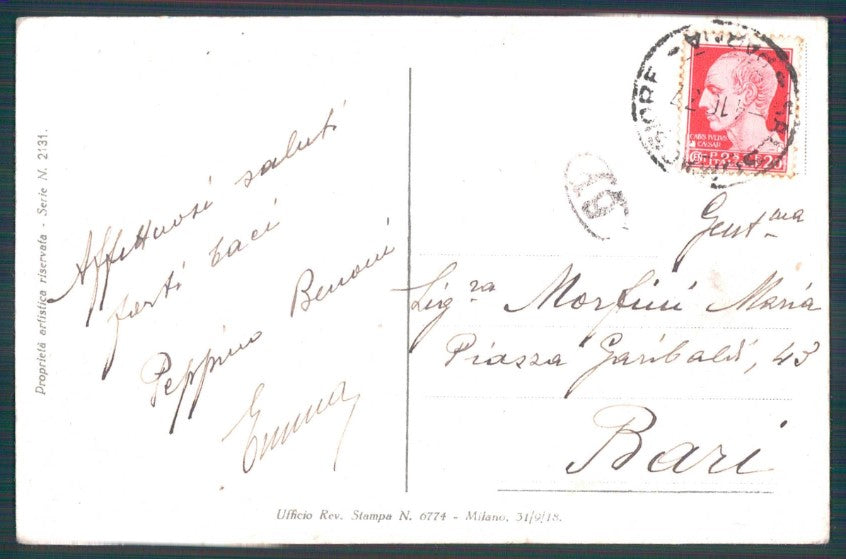 Proprietà artistica riservata - Serie N. 2131.
Affettuosi saluti
forti baci
Peppino Benoni
Emma
CAIVS·IVLIVS
CAESAR
19
Gent.ma
Sig.ra Morfini Maria
Piazza Garibaldi, 43
Bari
Ufficio Rev. Stampa N. 6774 - Milano, 31/9/18.